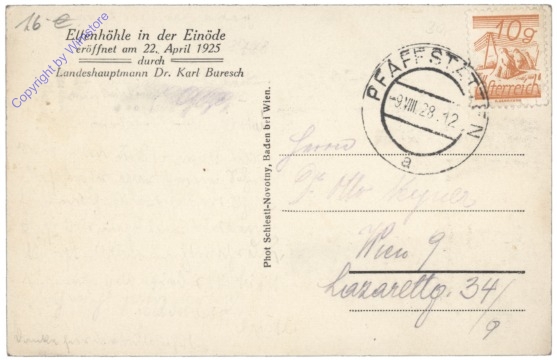 16-€
Copyright by Winstore
Elfenhöhle in der Einöde
eröffnet am 22. April 1925
durch
Landeshauptmann Dr. Karl Buresch
Phot Schiestl-Novotny, Baden bei Wien.
PFAFFSTÄTTEN
-9.VIII.28.12
a
10g
Österreich
Herrn
Otto
Wien 9.
Lazarettg. 34/9